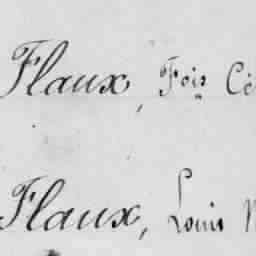 Flaux, Fois Cé
Flaux, Louis